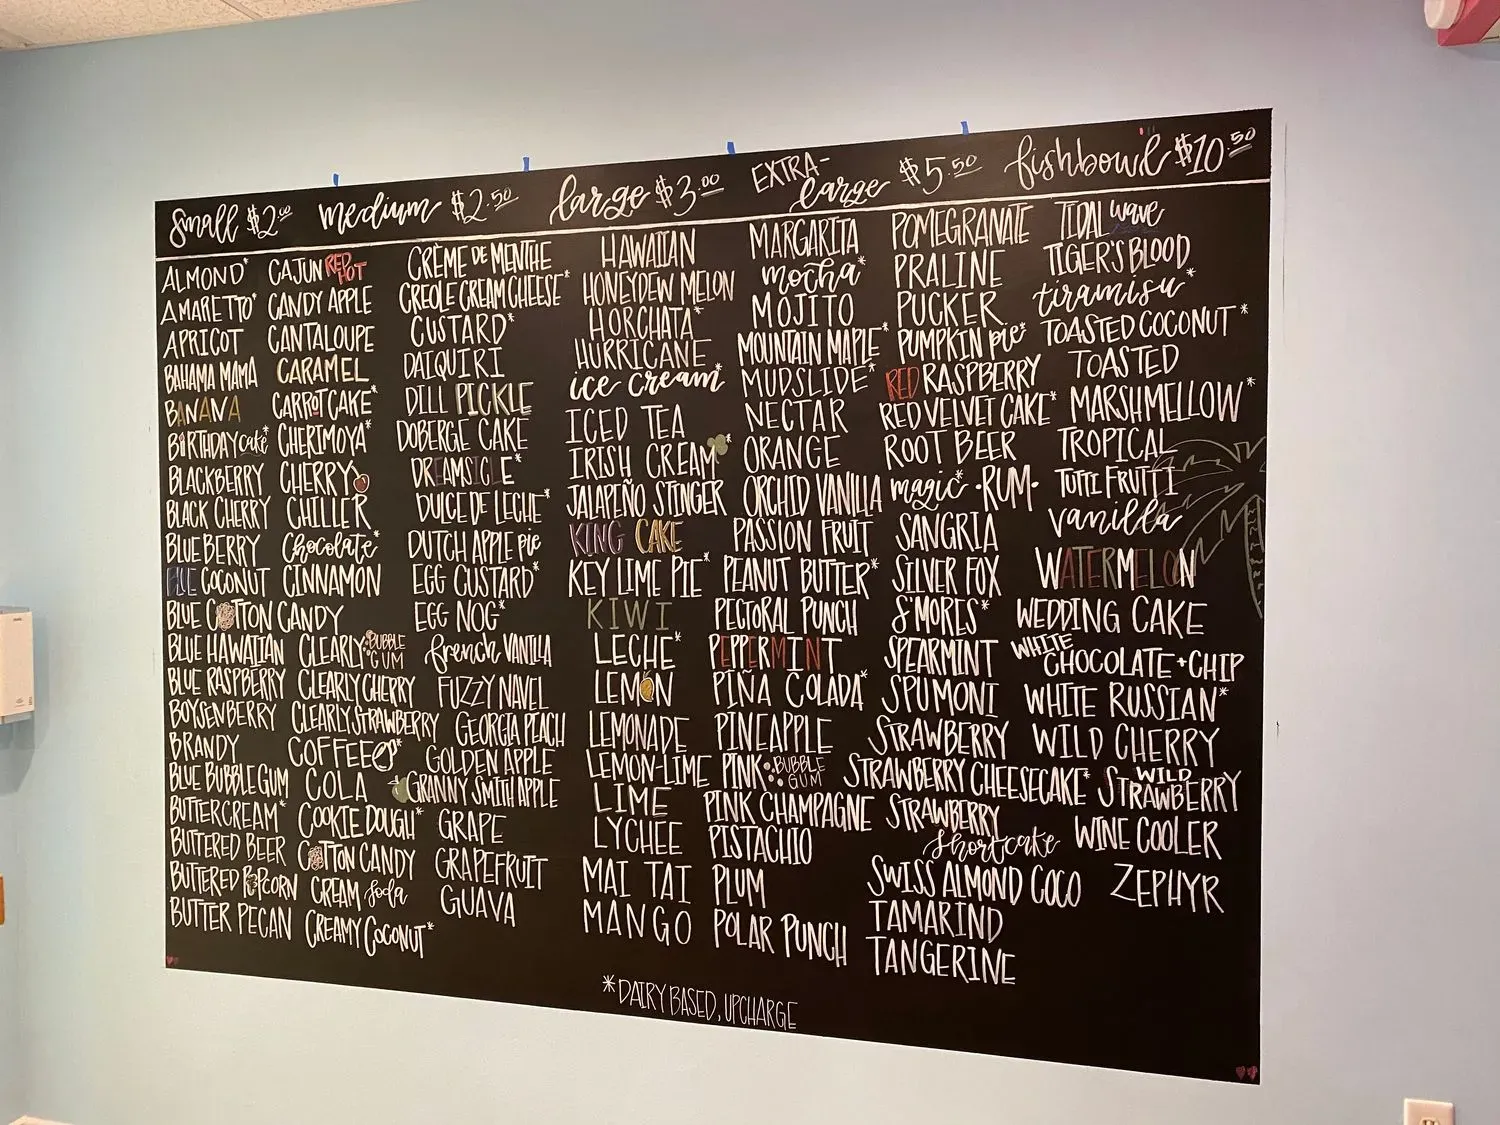 small $2.00 medium $2.50 large $3.00 EXTRA-large $5.50 fishbowl $10.50
ALMOND*
AMARETTO*
APRICOT
BAHAMA MAMA
BANANA
BIRTHDAY cake*
BLACKBERRY
BLACK CHERRY
BLUEBERRY
BLUE COCONUT
BLUE COTTON CANDY
BLUE HAWAIIAN
BLUE RASPBERRY
BOYSENBERRY
BRANDY
BLUE BUBBLE GUM
BUTTERCREAM*
BUTTERED BEER
BUTTERED POPCORN
BUTTER PECAN
CAJUN RED HOT
CANDY APPLE
CANTALOUPE
CARAMEL
CARROT CAKE*
CHERIMOYA*
CHERRY
CHILLER
Chocolate*
CINNAMON
CLEARLY BUBBLE GUM
CLEARLY CHERRY
CLEARLY STRAWBERRY
COFFEE*
COLA
COOKIE DOUGH*
COTTON CANDY
CREAM soda
CREAMY COCONUT*
CRÈME DE MENTHE
CREOLE CREAM CHEESE*
CUSTARD*
DAIQUIRI
DILL PICKLE
DOBERGE CAKE
DREAMSICLE*
DULCE DE LECHE*
DUTCH APPLE pie
EGG CUSTARD*
EGG NOG*
french VANILLA
FUZZY NAVEL
GEORGIA PEACH
GOLDEN APPLE
GRANNY SMITH APPLE
GRAPE
GRAPEFRUIT
GUAVA
HAWAIIAN
HONEYDEW MELON
HORCHATA*
HURRICANE
ice cream*
ICED TEA
IRISH CREAM*
JALAPEÑO STINGER
KING CAKE
KEY LIME PIE*
KIWI
LECHE*
LEMON
LEMONADE
LEMON-LIME
LIME
LYCHEE
MAI TAI
MANGO
MARGARITA
mocha*
MOJITO
MOUNTAIN MAPLE*
MUDSLIDE*
NECTAR
ORANGE
ORCHID VANILLA
PASSION FRUIT
PEANUT BUTTER*
PECTORAL PUNCH
PEPPERMINT
PIÑA COLADA*
PINEAPPLE
PINK BUBBLE GUM
PINK CHAMPAGNE
PISTACHIO
PLUM
POLAR PUNCH
POMEGRANATE
PRALINE
PUCKER
PUMPKIN pie*
RED RASPBERRY
RED VELVET CAKE*
ROOT BEER
magic* •RUM•
SANGRIA
SILVER FOX
S'MORES*
SPEARMINT
SPUMONI
STRAWBERRY
STRAWBERRY CHEESECAKE*
STRAWBERRY
Shortcake
SWISS ALMOND COCO
TAMARIND
TANGERINE
TIDAL wave
TIGER'S BLOOD
tiramisu*
TOASTED COCONUT*
TOASTED
MARSHMELLOW*
TROPICAL
TUTTI FRUTTI
vanilla
WATERMELON
WEDDING CAKE
WHITE
CHOCOLATE+CHIP
WHITE RUSSIAN*
WILD CHERRY
WILD
STRAWBERRY
WINE COOLER
ZEPHYR
*DAIRY BASED, UPCHARGE